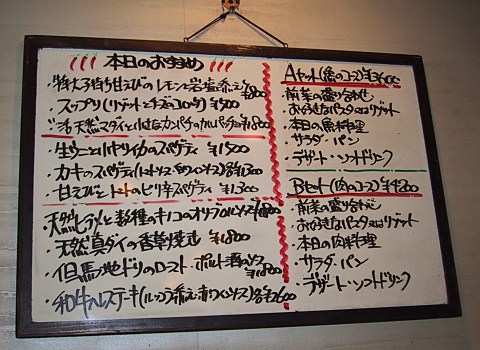 本日のおすすめ
特大子持ち甘えびのレモンと岩塩添え ¥800
・スップリ(リゾットとチーズのコロッケ) ¥500
天然マダイと小さなカンパチのカルパッチョ
・生ウニと小ヤリイカのスパゲティ ¥1500
・カキのスパゲティ 各¥1300
・甘えびとトマトのピリ辛スパゲティ ¥1,300
・天然ヒラメと数種のキノコのオリーブオイルソース
・天然真ダイの香草焼き ¥1,800
・但馬地ドリのロースト・ポルト酒ソース ¥1,800
・和牛ヘレステーキ(ルッコラ添え・赤ワインソース) ¥2600
Aセット(魚のコース)
・前菜の盛り合わせ
・お好きなパスタ又はリゾット
・本日の魚料理
・サラダ・パン
・デザート・ソフトドリンク
Bセット(肉のコース) ¥4200
・前菜の盛り合わせ
・お好きなパスタ又はリゾット
・本日の肉料理
・サラダ・パン
・デザート・ソフトドリンク